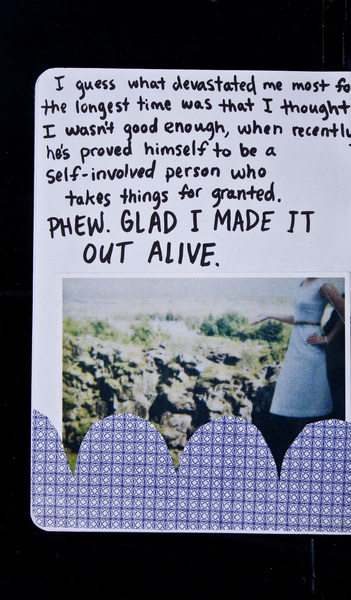 I guess what devastated me most fo
the longest time was that I thought
I wasn't good enough, when recently
he's proved himself to be a
self-involved person who
takes things for granted.
PHEW. GLAD I MADE IT
OUT ALIVE.